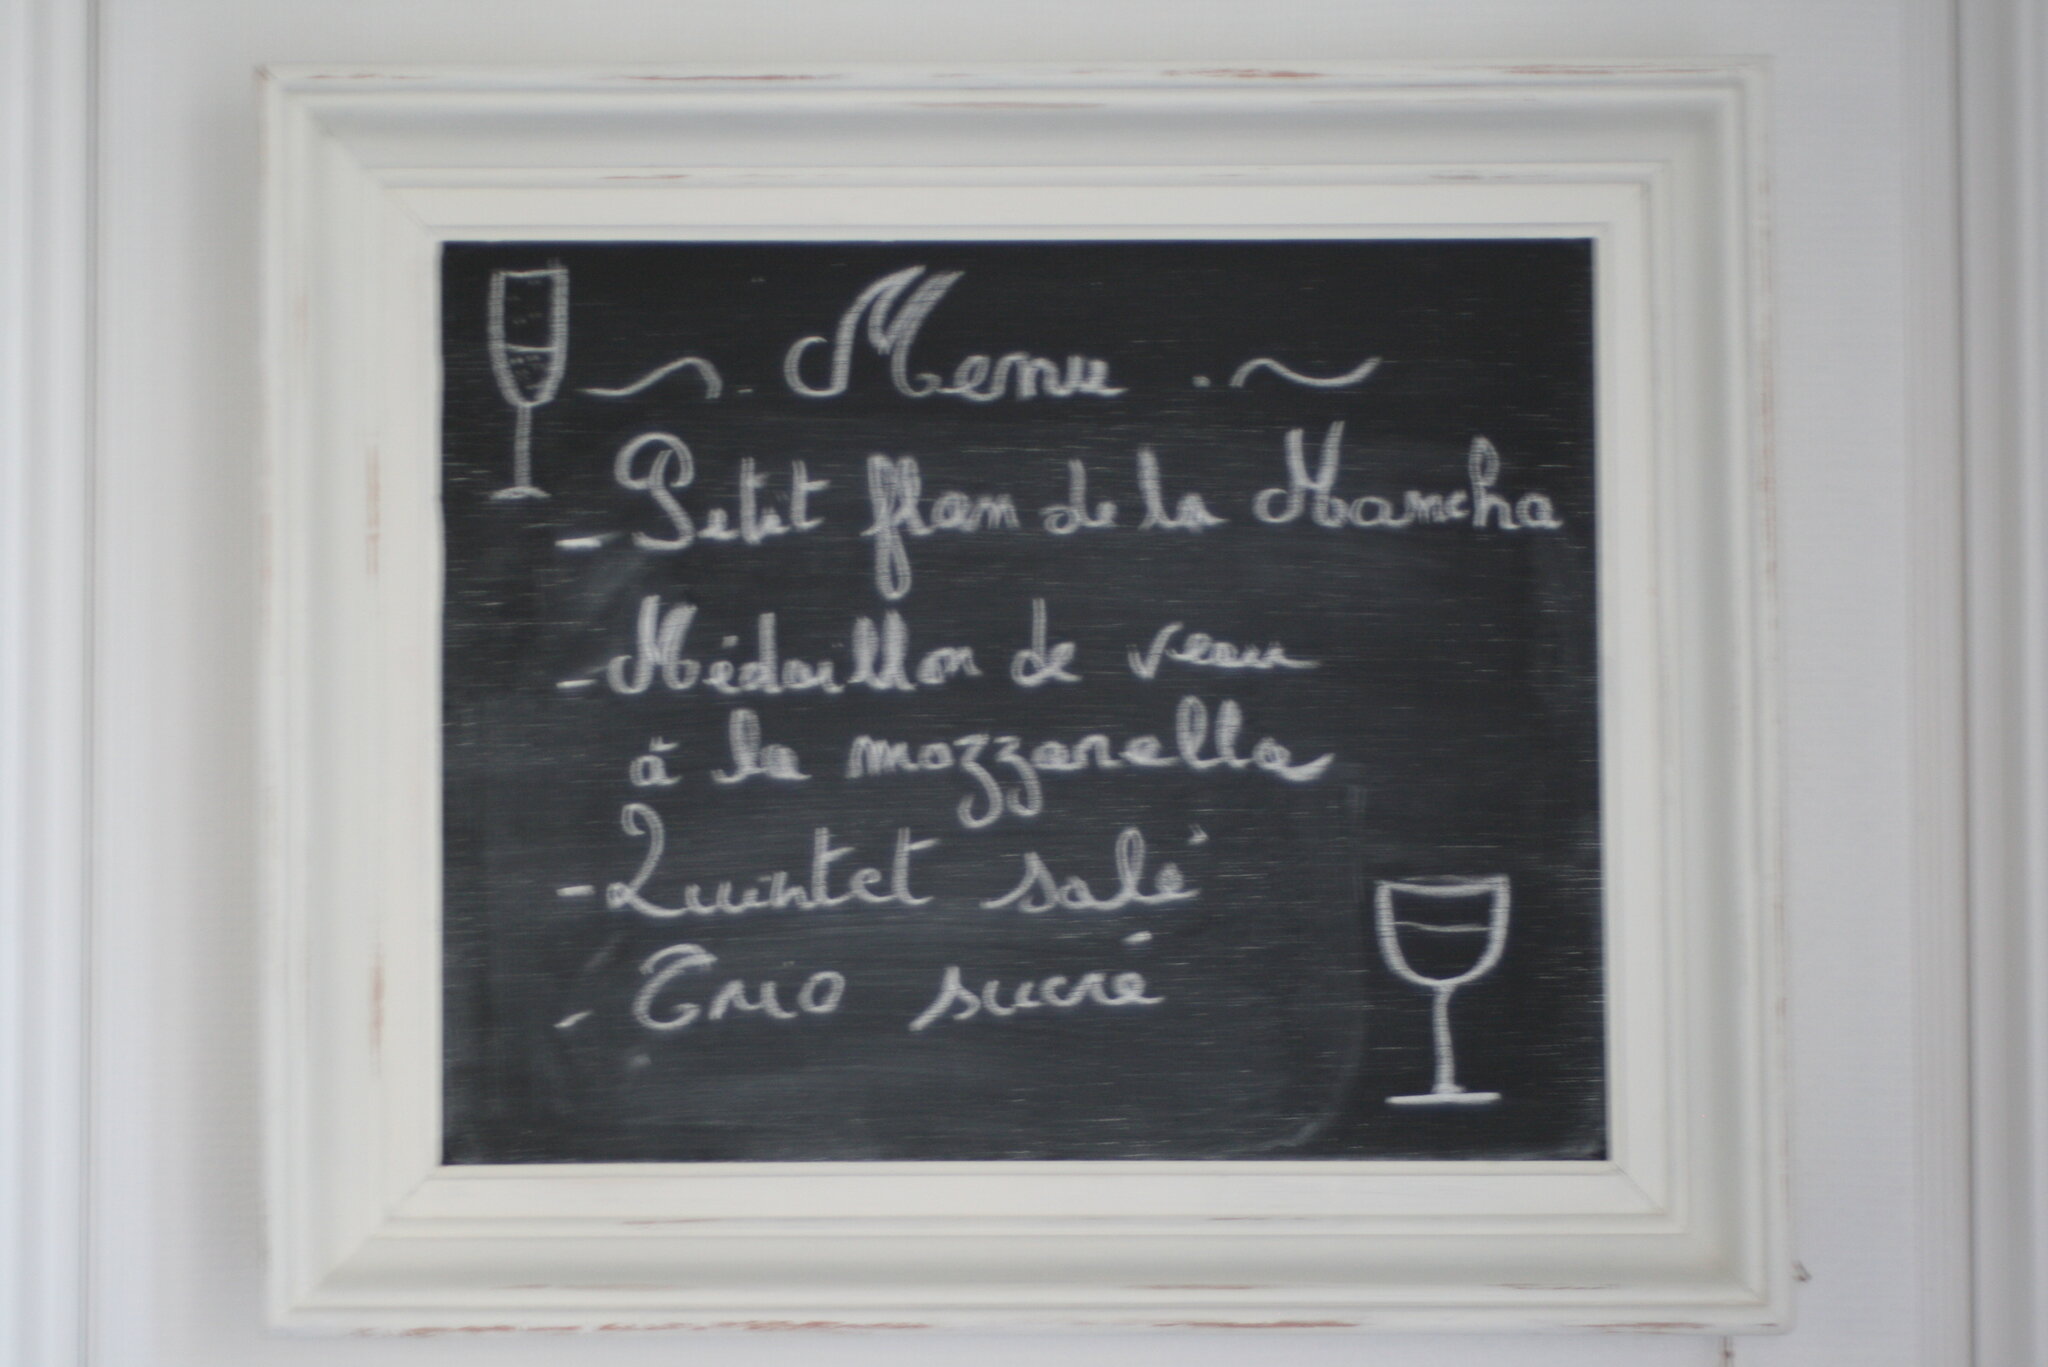 ~. Menu .~
- Petit flan de la Mancha
- Médaillon de veau
à la mozzarella
- Quintet salé
- Trio sucré